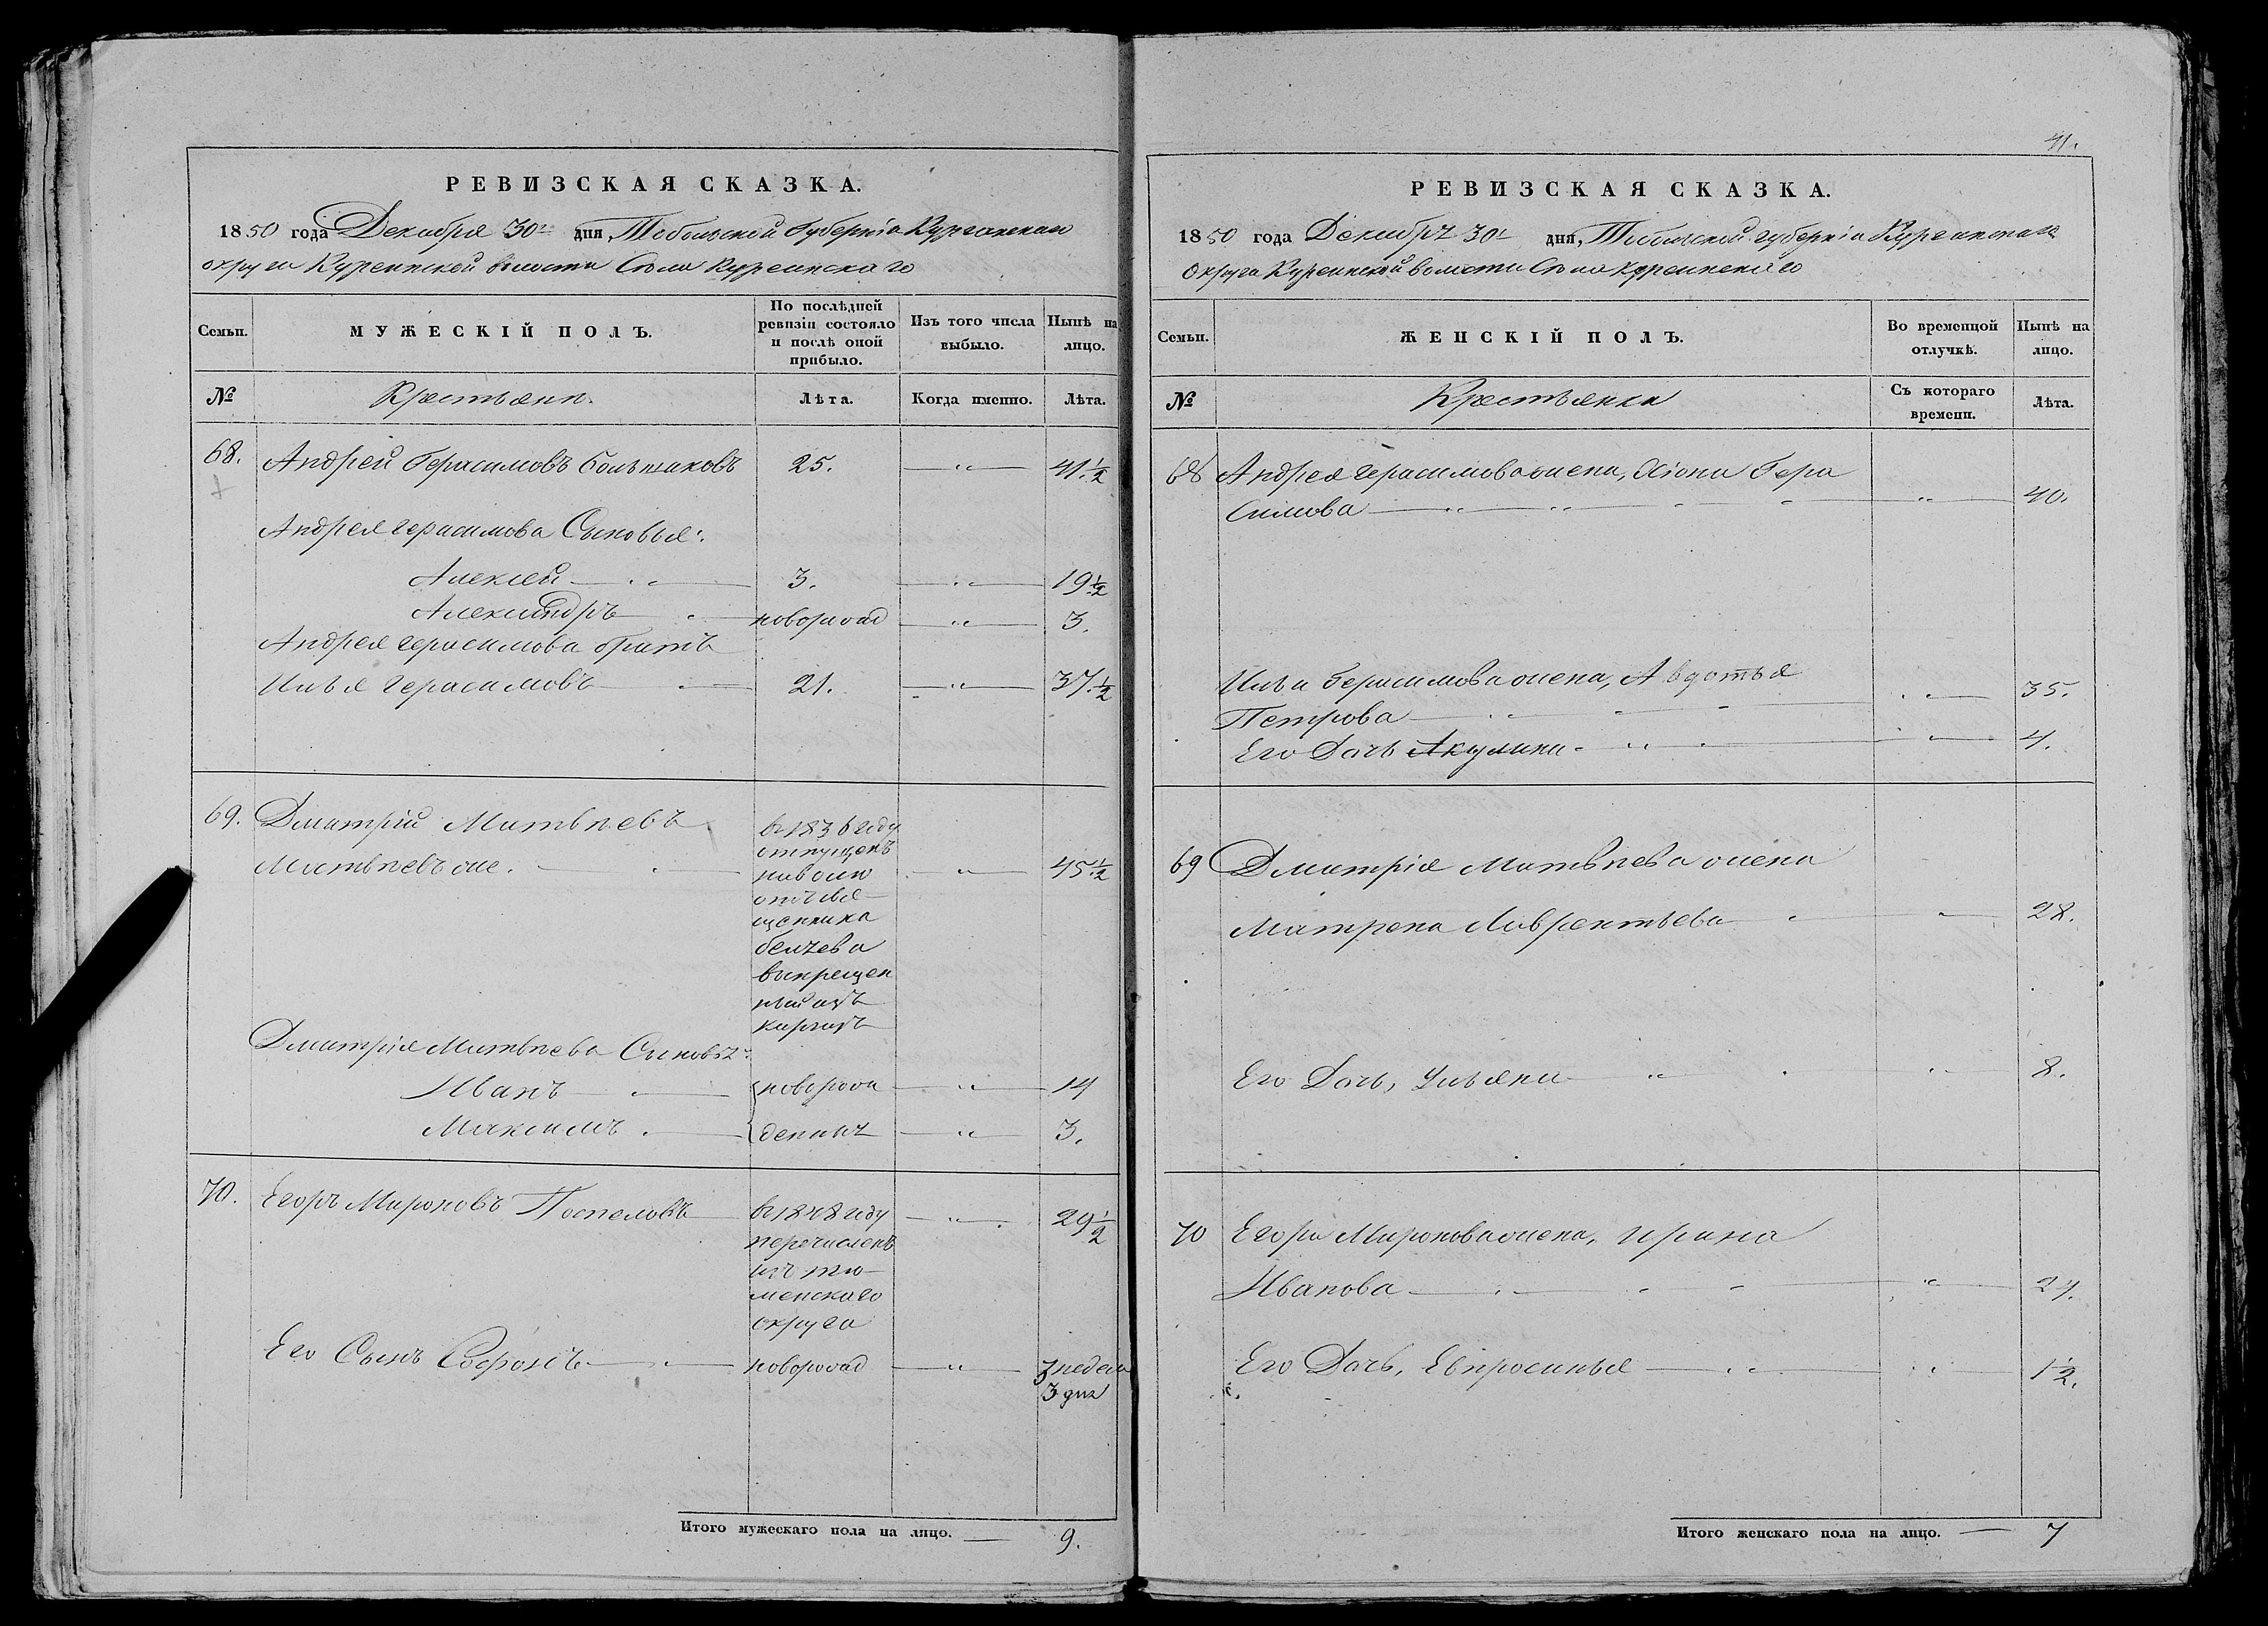 РЕВИЗСКАЯ СКАЗКА.
1850 года Декабря 30го дня, Тобольской губернiи Курганскаго
округа Куреинской волости Села Куреинскаго
Семьи.
МУЖЕСКІЙ ПОЛЪ.
По послѣдней
ревизіи состояло
и послѣ оной
прибыло.
Изъ того числа
выбыло.
Нынѣ на
лицо.
№
Крестьяни.
Лѣта.
Когда именно.
Лѣта.
68. Андрей Герасимовъ Большаковъ 25. — „ — 41.½
Андрея Герасимова Сыновья:
Алексѣй — „ — 3. — „ — 19½
Александръ — новорожд — „ — 3.
Андрея Герасимова братъ
Илья Герасимовъ — 21. — „ — 37.½
69. Дмитрій Матвѣевъ въ 1836 году
отпущенъ
Матвѣевъ же. наволю — „ — 45½
отъ свя-
щенника
выкрещен
ный изъ
киргизъ
Дмитрія Матвѣева Сыновья:
Иванъ — новорож — „ — 14
Максимъ — денныя — „ — 3.
70. Егоръ Мироновъ Поспеловъ въ 1848 году — „ — 29½
перечисленъ
изъ тю-
менскаго
округа
Его Сынъ Софонъ — новорожд — „ — 3 недели
3 дня
Итого мужескаго пола на лицо. — 9.
41.
РЕВИЗСКАЯ СКАЗКА.
1850 года Декабря 30го дня, Тобольской губернiи Курганскаго
округа Куреинской волости Села Куреинскаго
Семьи.
ЖЕНСКІЙ ПОЛЪ.
Во временной
отлучкѣ.
Нынѣ на
лицо.
№
Крестьянки
Съ котораго
времени.
Лѣта.
68 Андрея Герасимова жена, Хіона Гера
симова — „ — 40.
Ильи Герасимова жена, Авдотья
Петрова — „ — 35.
Его Дочь Акулина — „ — 4.
69 Дмитрія Матвѣева жена
Матрена Лаврентьева — „ — 28.
Его Дочь, Ульяна — „ — 8.
70 Егора Миронова жена, Ирина
Иванова — „ — 24.
Его Дочь, Евпросинья — „ — 1½.
Итого женскаго пола на лицо. — 7